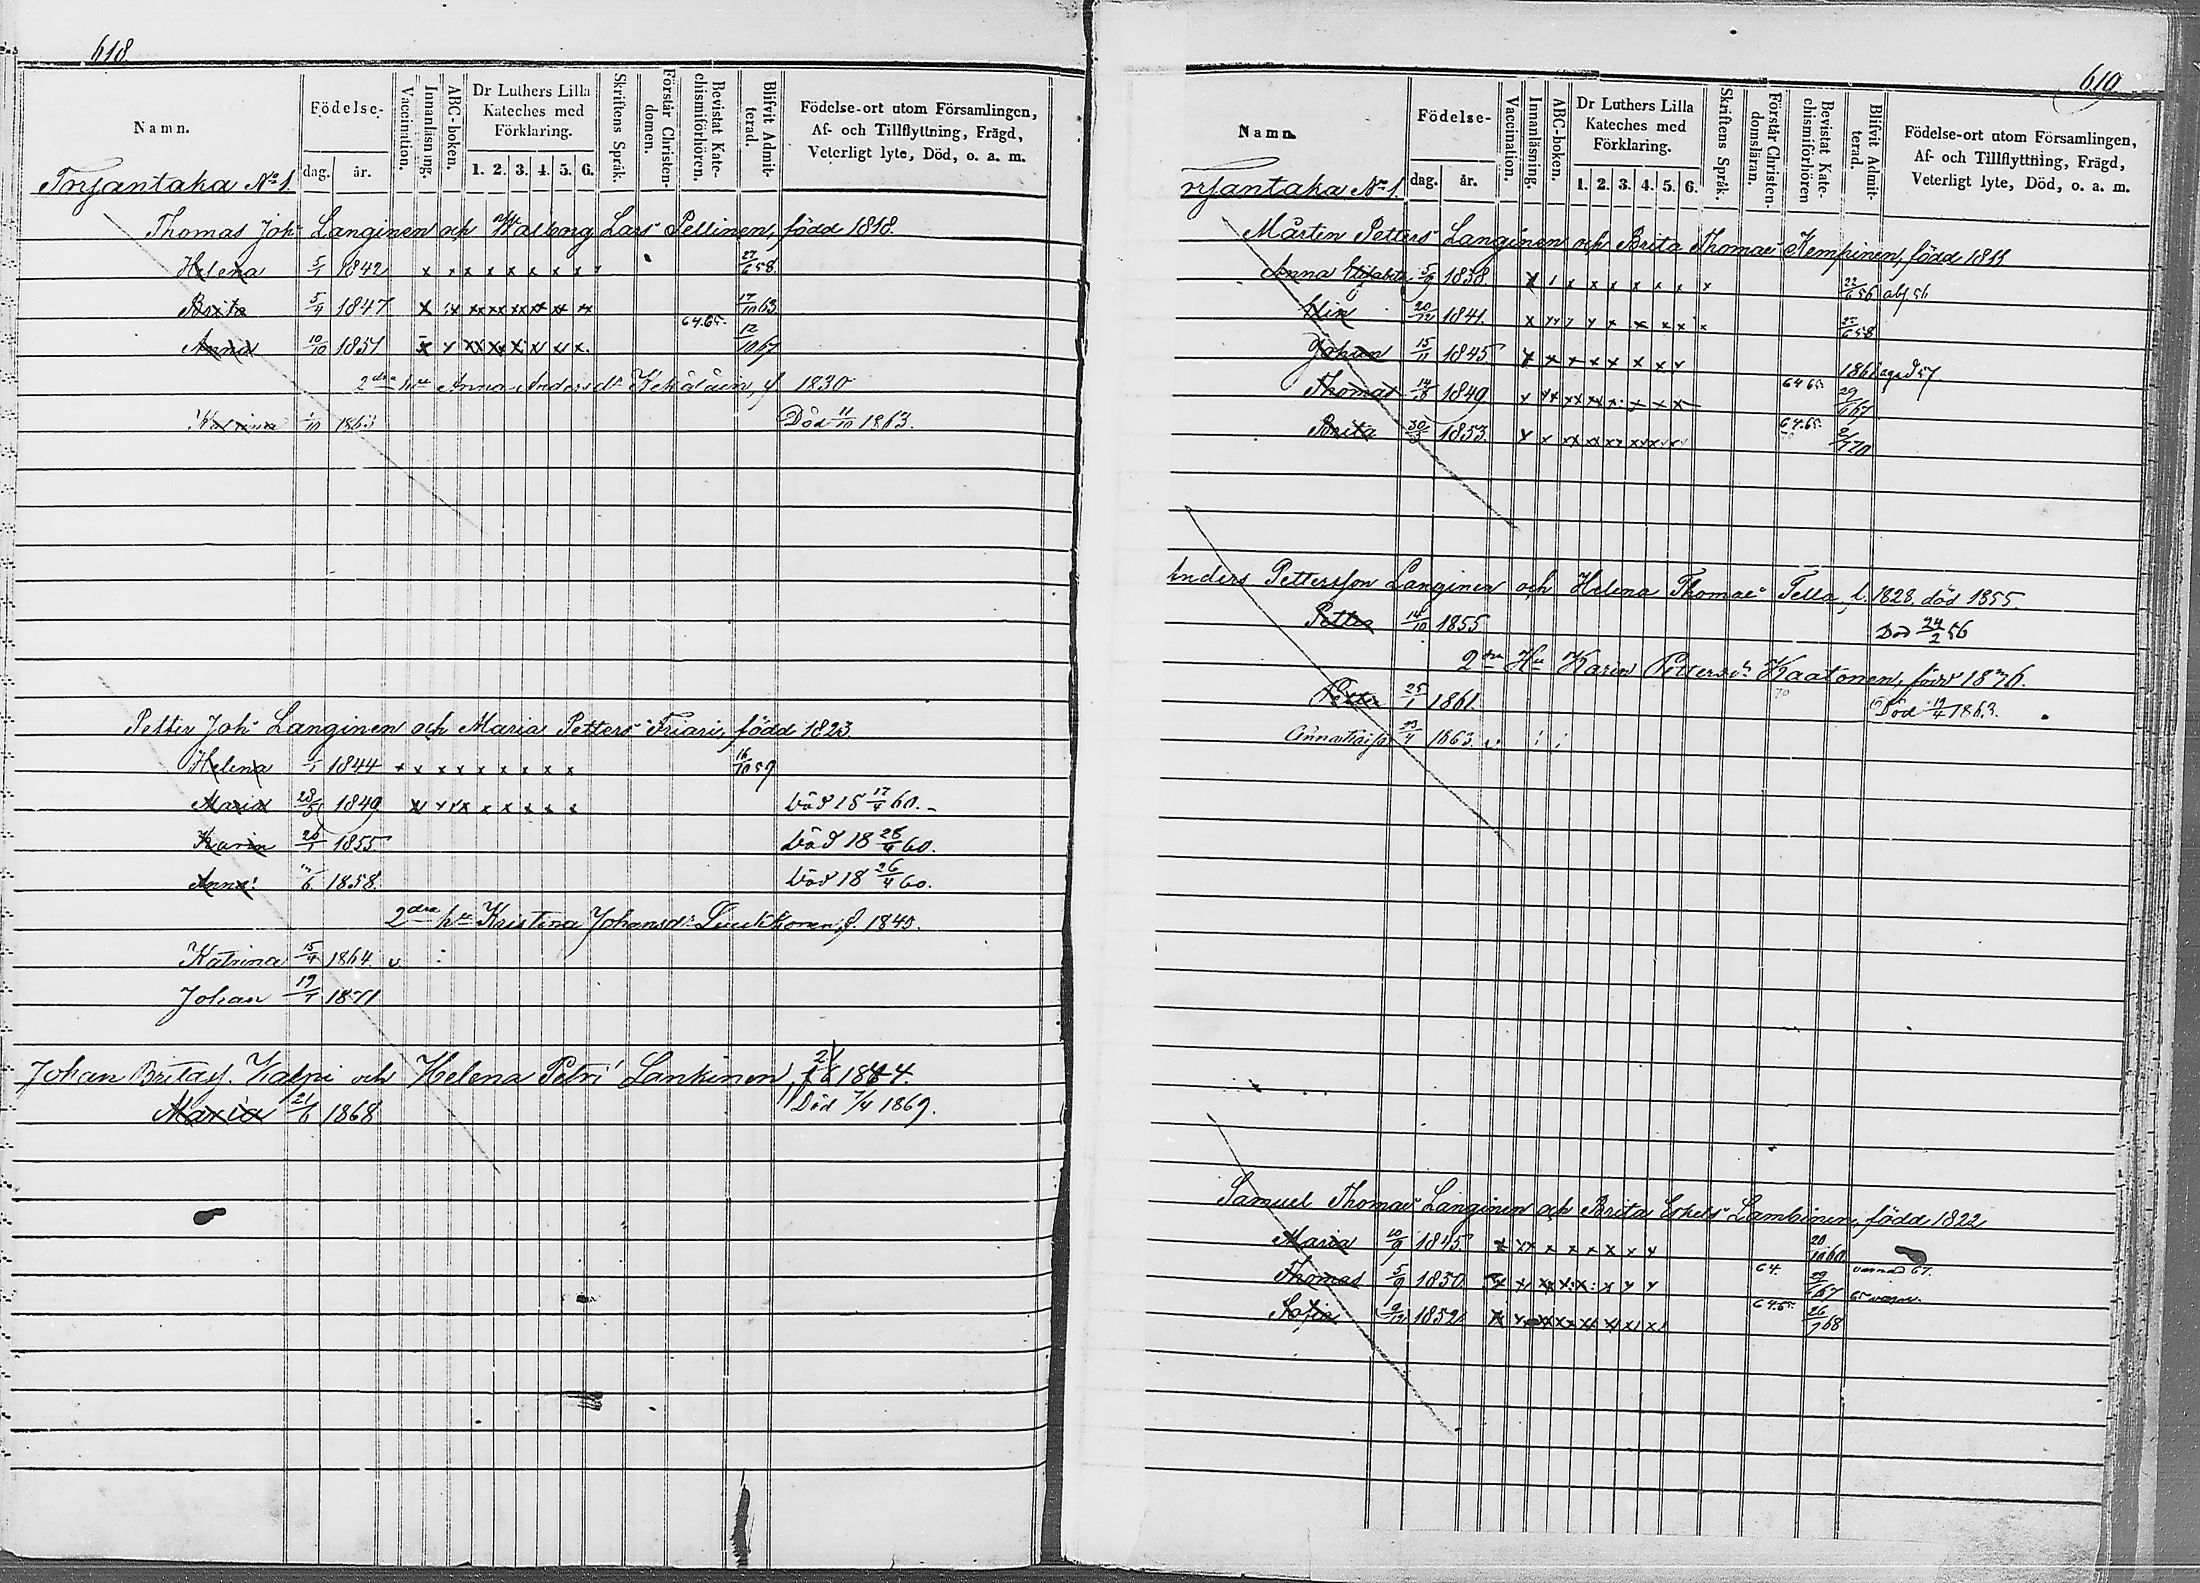 618.
Namn.
Födelse-
dag. år.
Vaccination.
Innanläsning.
ABC-boken.
Dr Luthers Lilla Kateches med Förklaring.
1. 2. 3. 4. 5. 6.
Skriftens Språk.
Förstår Christen-domen.
Bevistat Kate-chismiförhören.
Blifvit Admit-terad.
Födelse-ort utom Församlingen, Af- och Tillflyttning, Frägd, Veterligt lyte, Död, o. a. m.
Torjantaka No 1.
Thomas Johs Langinen och Walborg Lars Pellinen, född 1818.
Helena 5/1 1842 x x x x x x x x x 27/6 58
Brita 5/4 1847 x x xx xx xx xx xx xx 17/10 63
Anna 10/10 1851 x x xx xx x x x x. 64.65. 12/10 67
2dra hu Anna Andersdr f 1830
Katrina 1/10 1863 Död 11/10 1863.
Petter Johs Langinen och Maria Petters Friari, född 1823
Helena 1844 x x x x x x x x x 16/10 59
Maria 28/5 1849 Död 18 17/4 60.
Karin 26/1 1855 Död 18 28/4 60.
Anna 1858. Död 18 26/4 60.
2dra hu Kristina Johansdr f. 1845.
Katrina 15/4 1864. v.
Johan 19/1 1871
Johan Kalpi och Helena Petri Lankinen, 1844.
Maria 21/6 1868 Död 7/4 1869.
619
Namn.
Födelse-
dag. år.
Vaccination.
Innanläsning.
ABC-boken.
Dr Luthers Lilla Kateches med Förklaring.
1. 2. 3. 4. 5. 6.
Skriftens Språk.
Förstår Christen-domsläran.
Bevistat Kate-chismiförhören
Blifvit Admit-terad.
Födelse-ort utom Församlingen, Af- och Tillflyttning, Frägd, Veterligt lyte, Död, o. a. m.
rjantaka No 1.
Mårten Petters Langinen och Brita Thomae Kempinen, född 1811
Anna Elisabeta 5/9 1838. 22/6 56
Elin 20/12 1841. 27/6 58
Johan 15/11 1845 1861
Thomas 1849 64 65 29/6 67
Brita 30/3 1853. 64.65.
Anders Pettersson Langinen och Helena Thomae Tella, f. 1828. död 1855.
Petter 14/10 1855 Död 24/2 56
2dra Hu Karin Petters Kaatonen, född
Petter 25/1 1861. Död 19/4 1863.
Anna 1863.
Samuel Thomas Langinen och Brita Erkels Lambinen, född 1822
Maria 10/9 1845. 20/10 60.
Thomas 5/9 1850 64. 29/6 67
Sofia 9/12 1852 64.65. 26/7 68